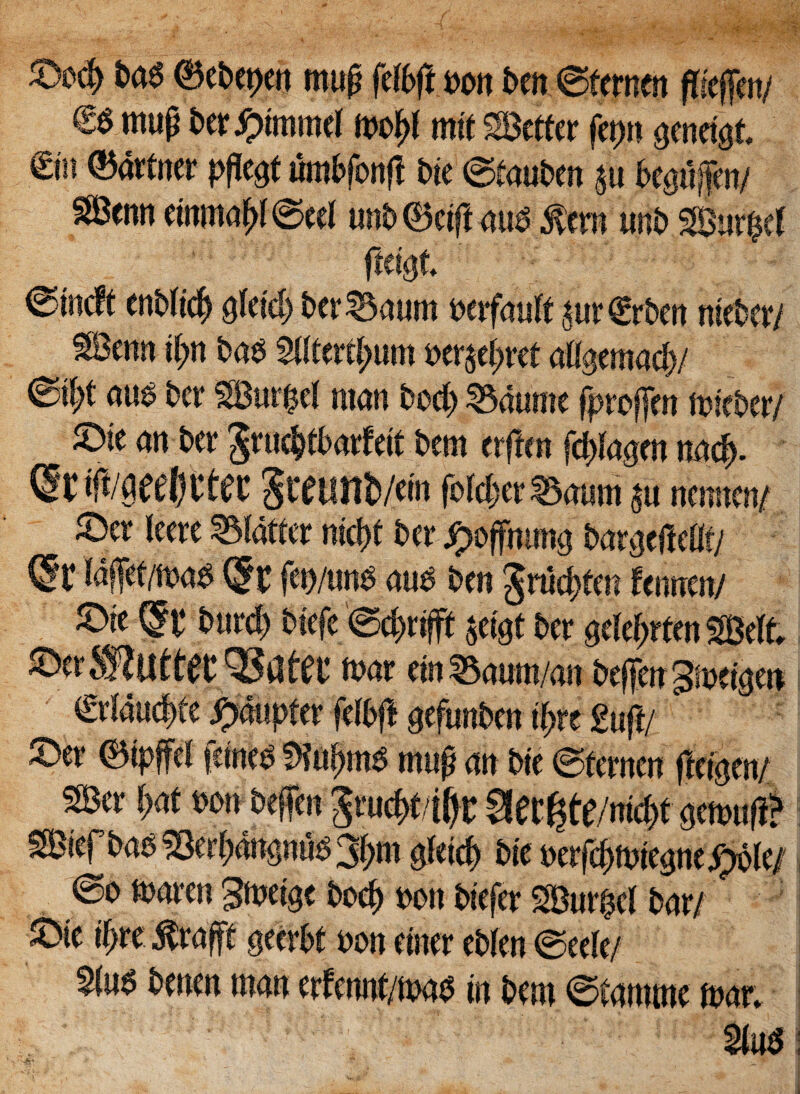 Doch das Gedeyen muß selbst von den Sternen fliessen/
Es muß der Himmel wohl mit Wetter seyn geneigt.
Ein Gärtner pflegt ümbsonst die Stauden zu begüssen/
Wenn einmahl Seel und Geist aus Kern und Wurtzel
steigt.
Sinckt endlich gleich der Baum verfault zur Erden nieder/
Wenn ihn das Alterthum verzehret allgemach/
Siht aus der Wurtzel man doch Bäume sprossen wieder/
Die an der Fruchtbarkeit dem ersten schlagen nach.
Er ist/geehrter Freund/ein solcher Baum zu nennen/
Der leere Blätter nicht der Hoffnung dargestellt/
Er lässet/was Er sey/uns aus den Früchten kennen/
Die Er durch diese Schrifft zeigt der gelehrten Welt.
Der Mutter Vater war ein Baum/an dessen Zweigen
Erläuchte Häupter selbst gefunden ihre Lust/
Der Gipffel seines Ruhms muß an die Sternen steigen/
Wer hat von dessen Frucht/ihr Aertzte/nicht gewust?
Wief das Verhängnüs Ihm gleich die verschwiegne Höle/
So waren Zweige doch von dieser Wurtzel dar/
Die ihre Krafft geerbt von einer edlen Seele/
Aus denen man erkennt/was in dem Stamme war.
Aus